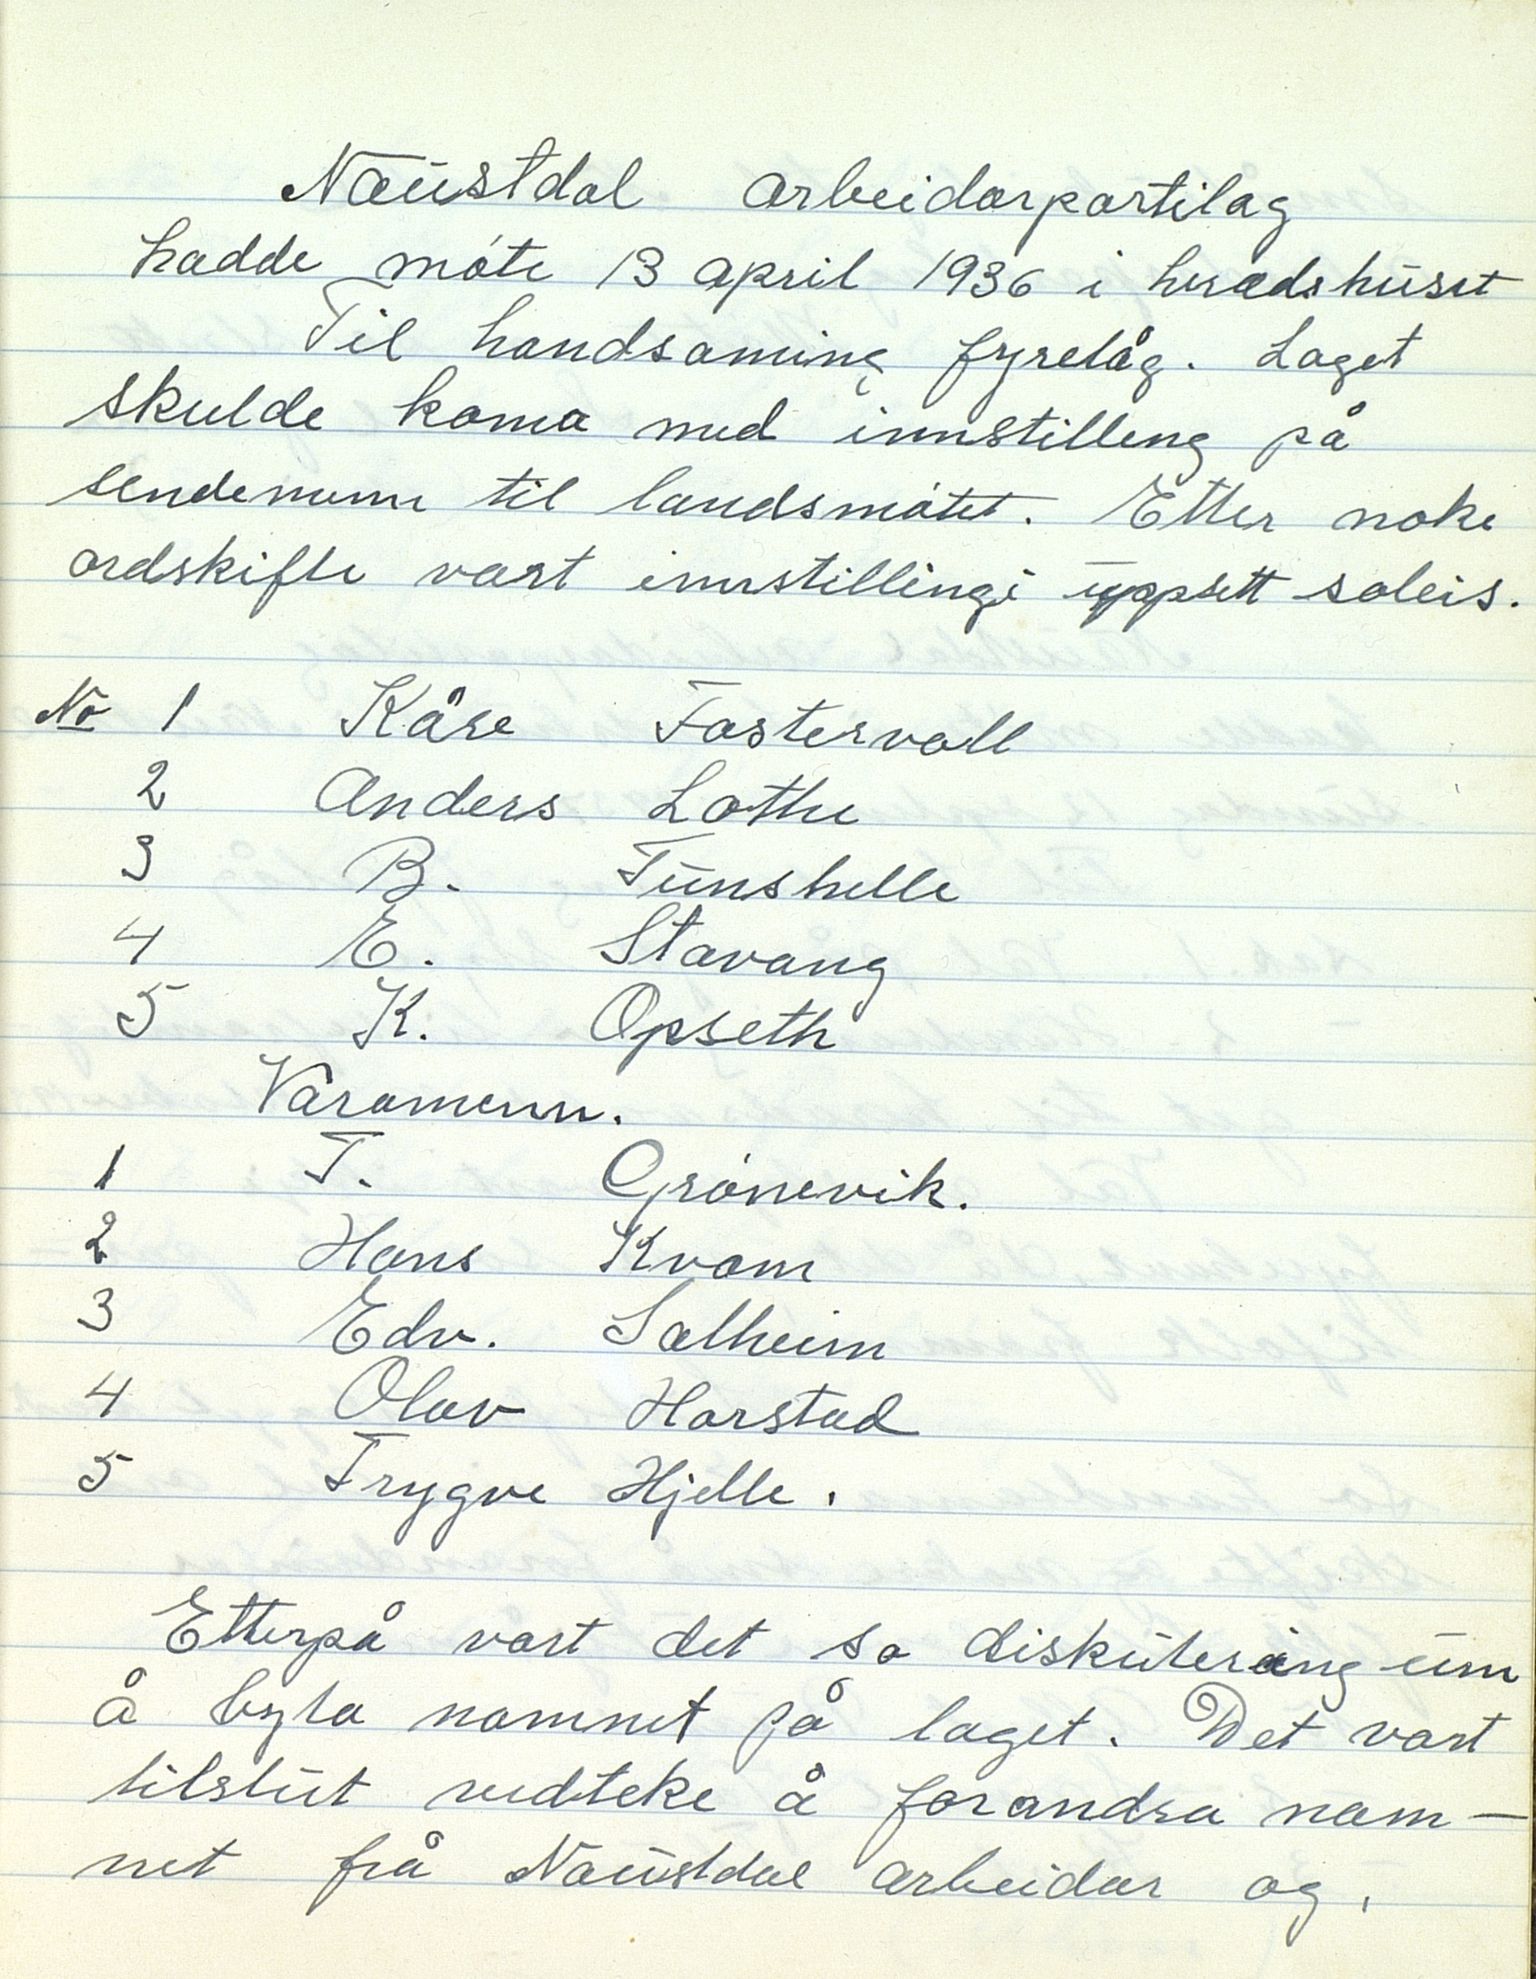 Naustdal arbeidarpartilag
hadde møte 13 april 1936 i heradshuset
Til handsaming fyrelåg. Laget
skulde koma med innstilling på
sendemenn til landsmøtet. Etter noke
ordskifte vart innstillingi uppsett soleis.
No 1 Kåre Fostervoll
2 Anders Lothe
3 B. Tunshelle
4 E. Stavang
5 K. Opseth
Varamenn.
1 T. Grønevik.
2 Hans Kvam
3 Edv. Solheim
4 Olav Harstad
5 Trygve Hjelle.
Etterpå vart det so diskutering um
å byta namnet på laget. Det vart
tilslut vedteke å forandra nam-
net frå Naustdal arbeidar og,